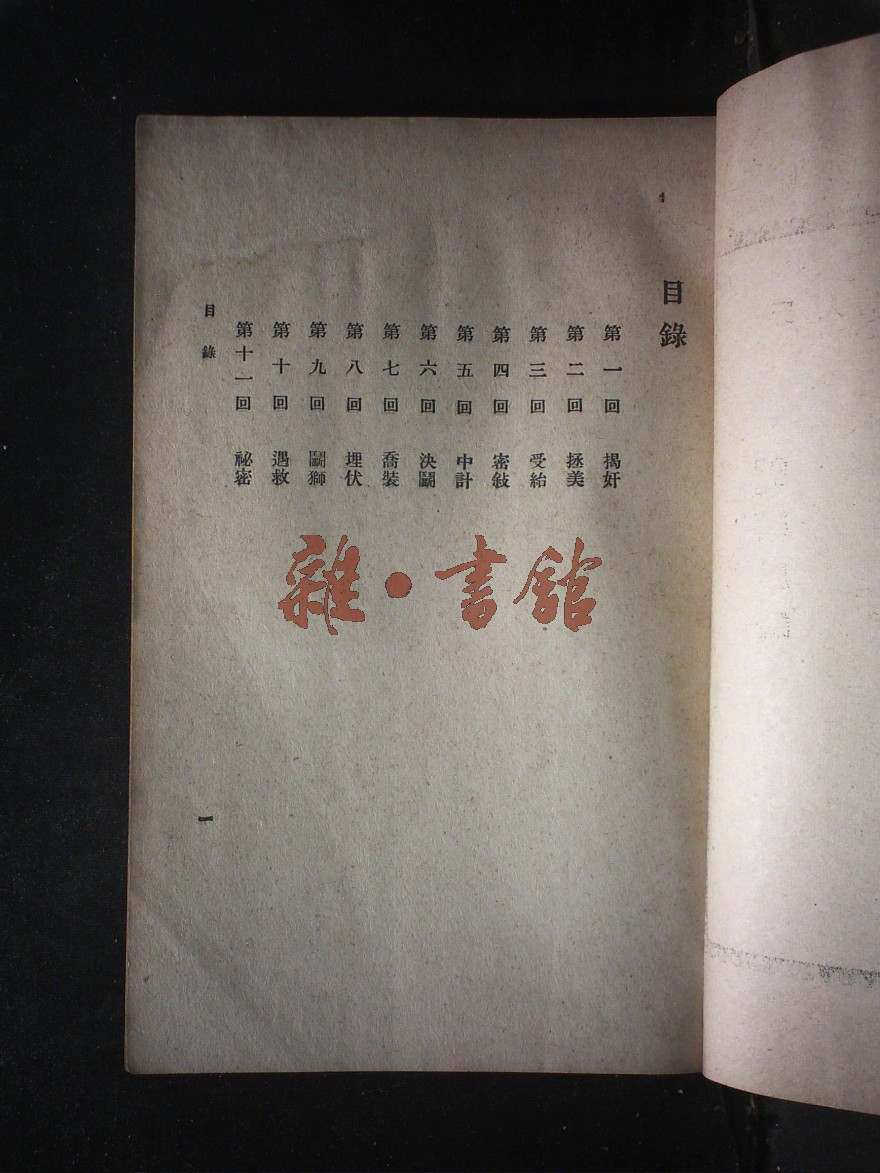 目錄
第一回 揭奸
第二回 拯美
第三回 受紿
第四回 密敍
第五回 中計
第六回 決鬭
第七回 喬裝
第八回 埋伏
第九回 鬭獅
第十回 遇救
第十一回 祕密
目錄
一
雜·書館